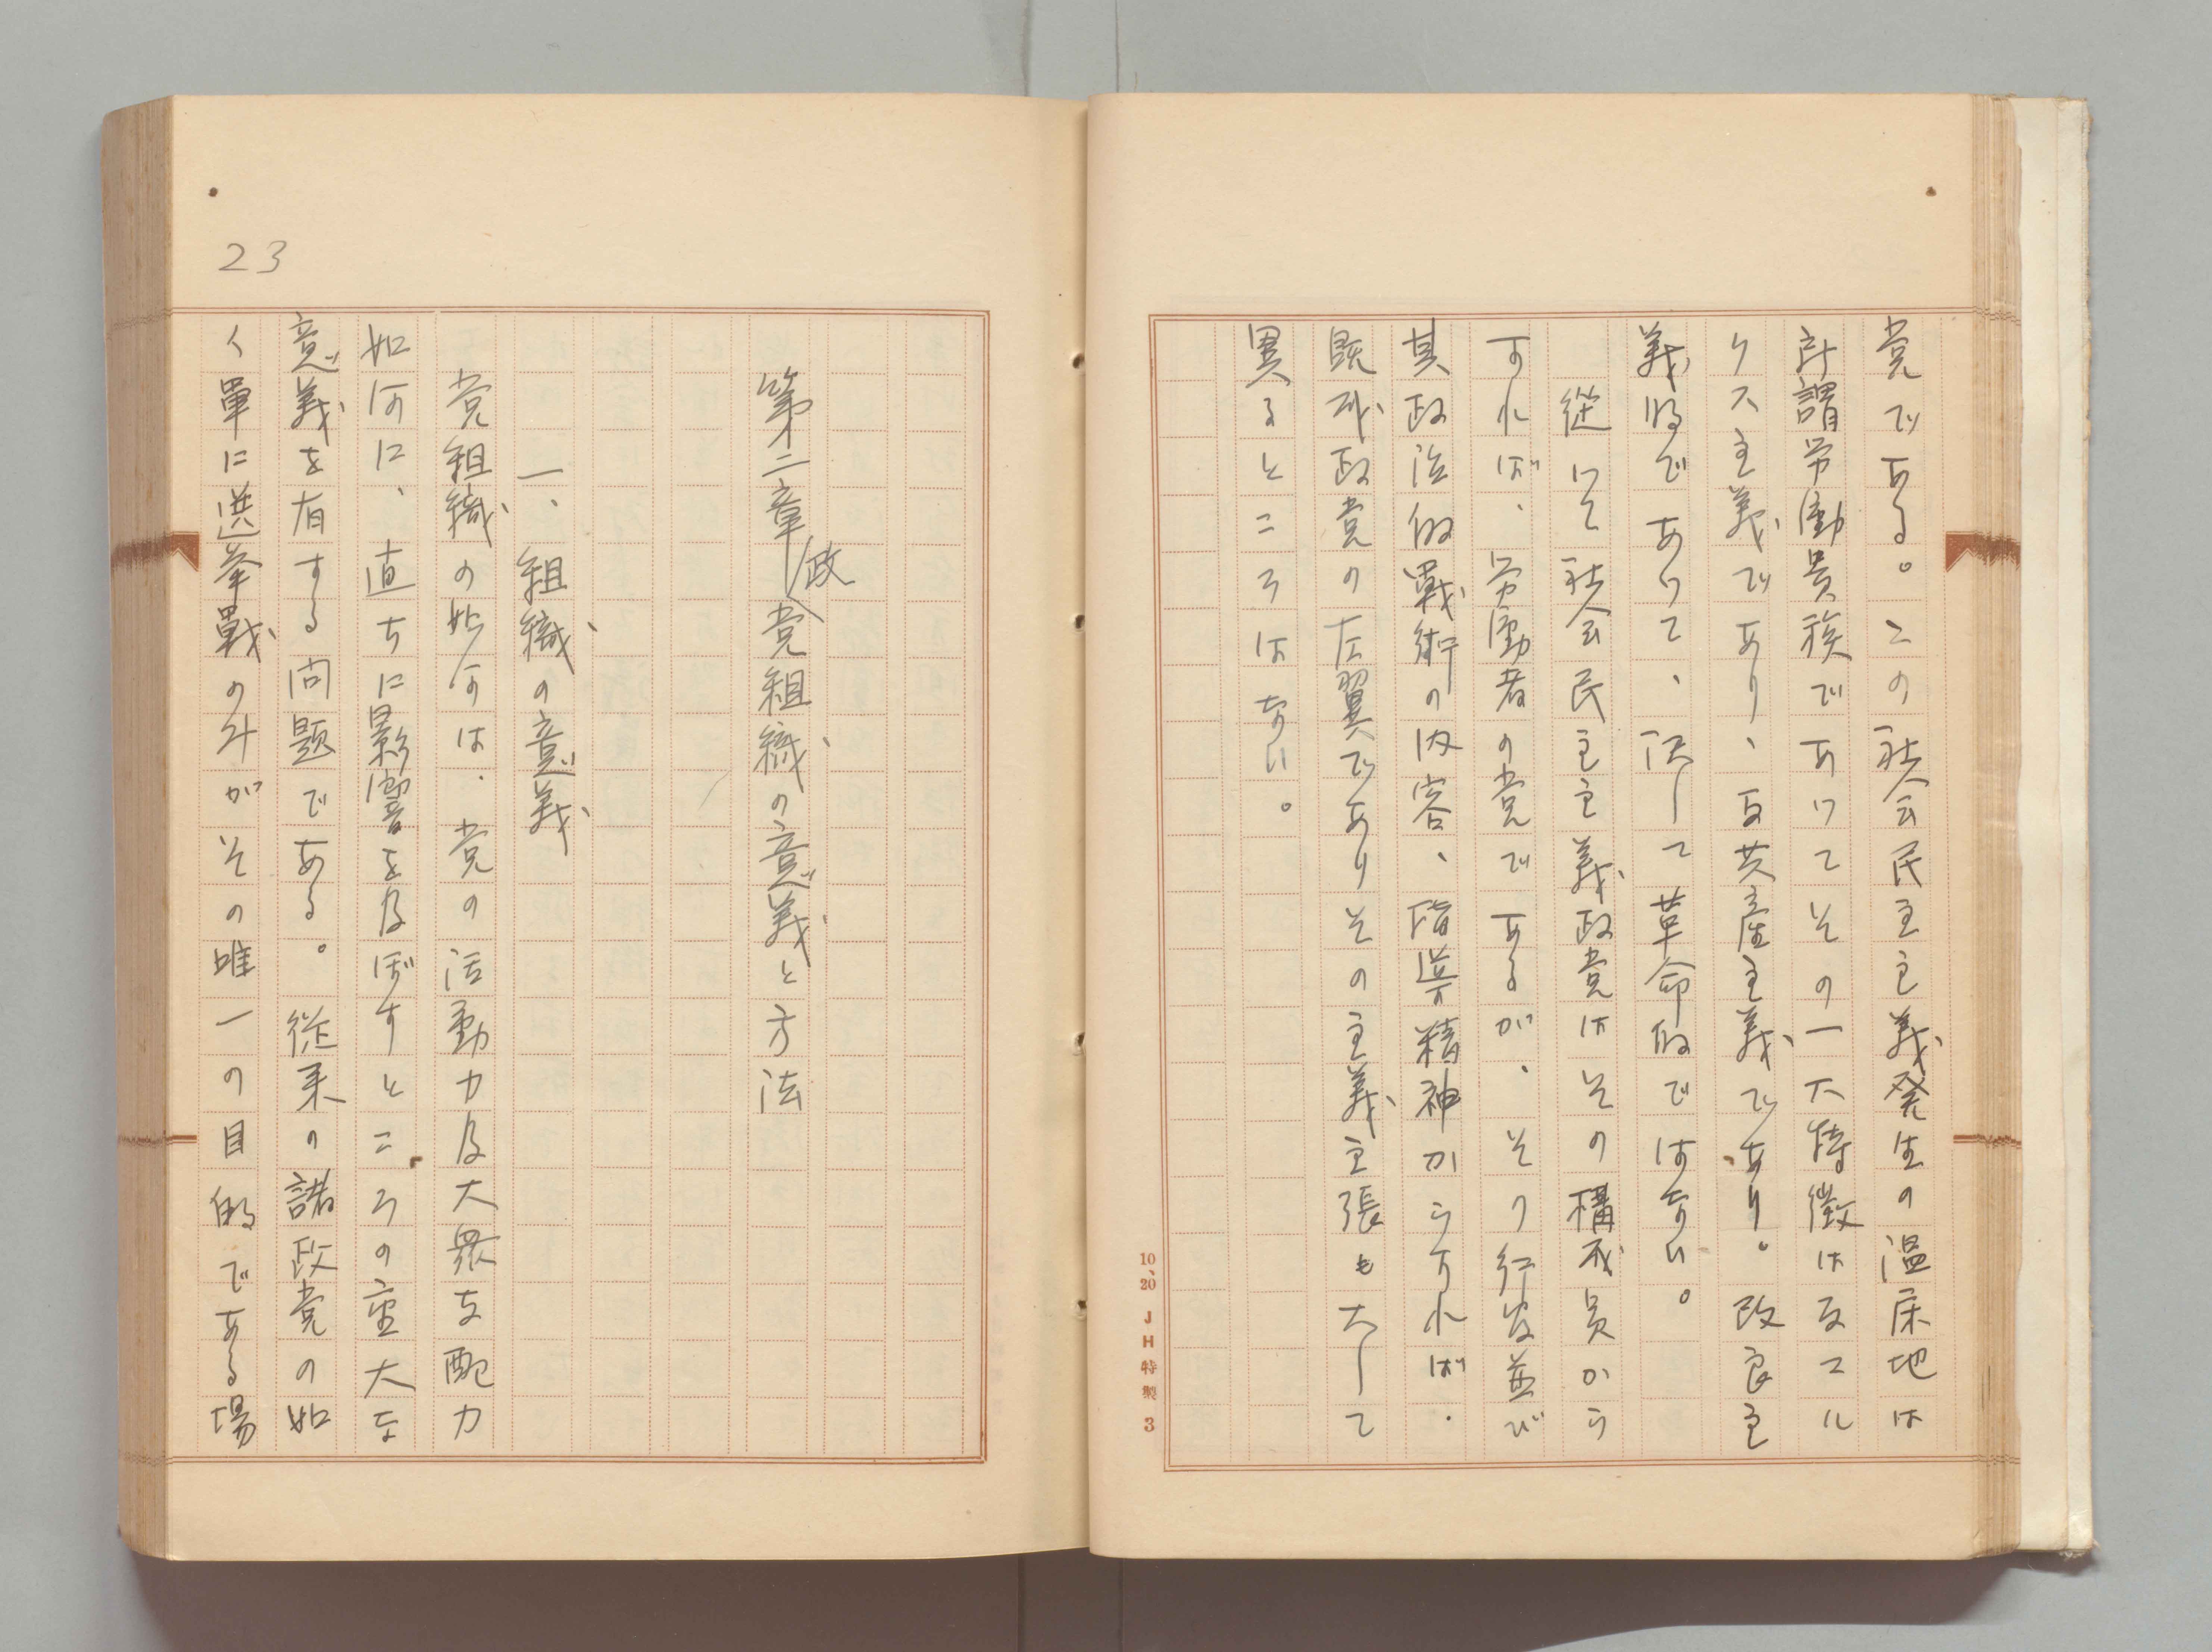 党である。この社会民主主義発生の温床地は
所謂労働貴族であつてその一大特徴は反マル
クス主義であり、反共産主義であり。改良主
義的であつて、決して革命的ではない。
従つて社会民主主義政党はその構成員から
すれば、労働者の党であるが、その行為並び
其政治的戦術の内容、指導精神からすれば、
既成政党の左翼でありその主義主張も大して
異るところはない。
10、20 JH特製 3
23
第二章 政党組織の意義と方法
一、組織の意義
党組織の如何は、党の活動力及大衆支配力
如何に、直ちに影響を及ぼすところの重大な
意義を有する問題である。従来の諸政党の如
く単に選挙戦のみがその唯一の目的である場